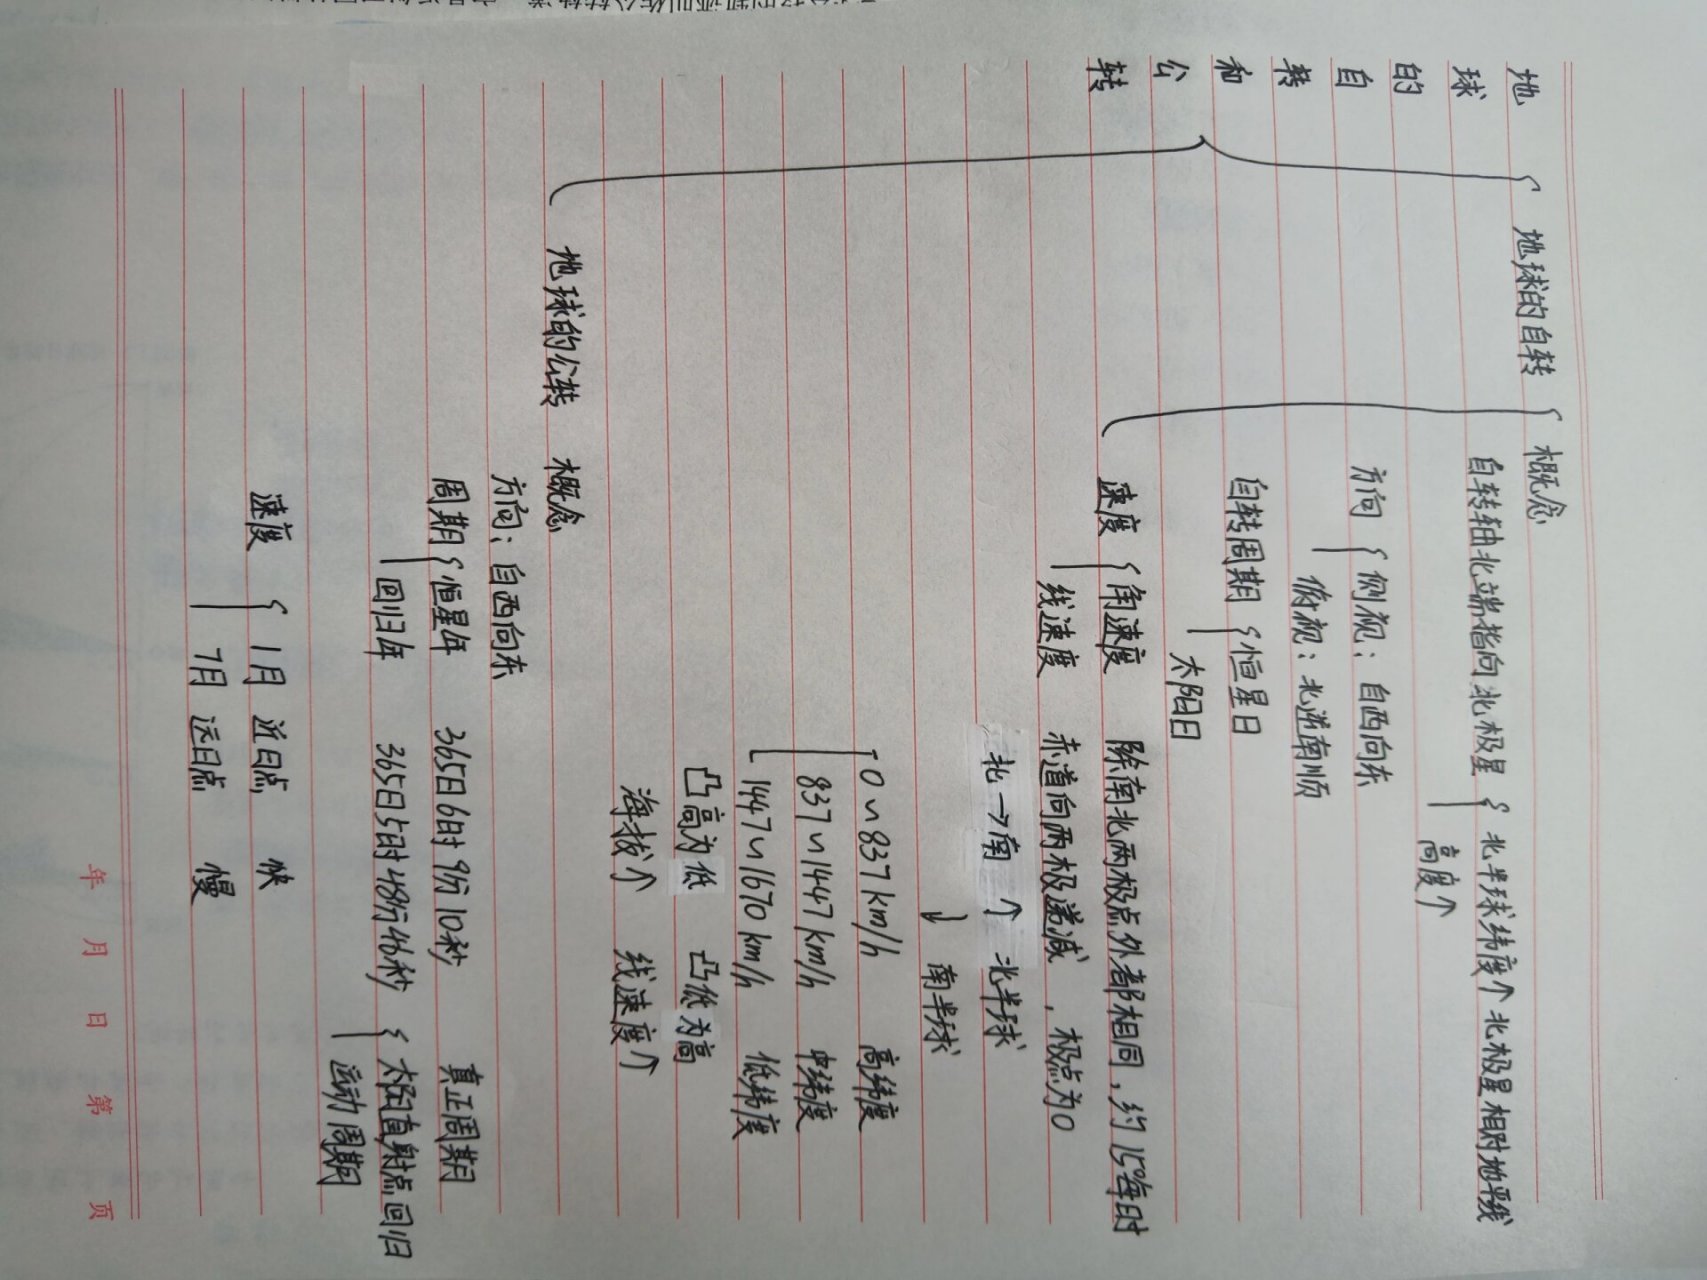 地球的自转和公转
地球的自转
概念
自转轴北端指向北极星 北半球纬度↑北极星相对地平线
高度↑
方向 侧视：自西向东
俯视：北逆南顺
自转周期 恒星日
太阳日
速度 角速度 除南北两极点外都相同，约15°每时
线速度 赤道向两极递减，极点为0
北→南 ↑ 北半球
↓ 南半球
0~837km/h 高纬度
837~1447km/h 中纬度
1447~1670km/h 低纬度
凸高为低 凸低为高
海拔↑ 线速度↑
地球的公转 概念
方向：自西向东
周期 恒星年 365日6时9分10秒 真正周期
回归年 365日5时48分46秒 太阳直射点回归
运动周期
速度 1月 近日点 快
7月 远日点 慢
年 月 日 第 页